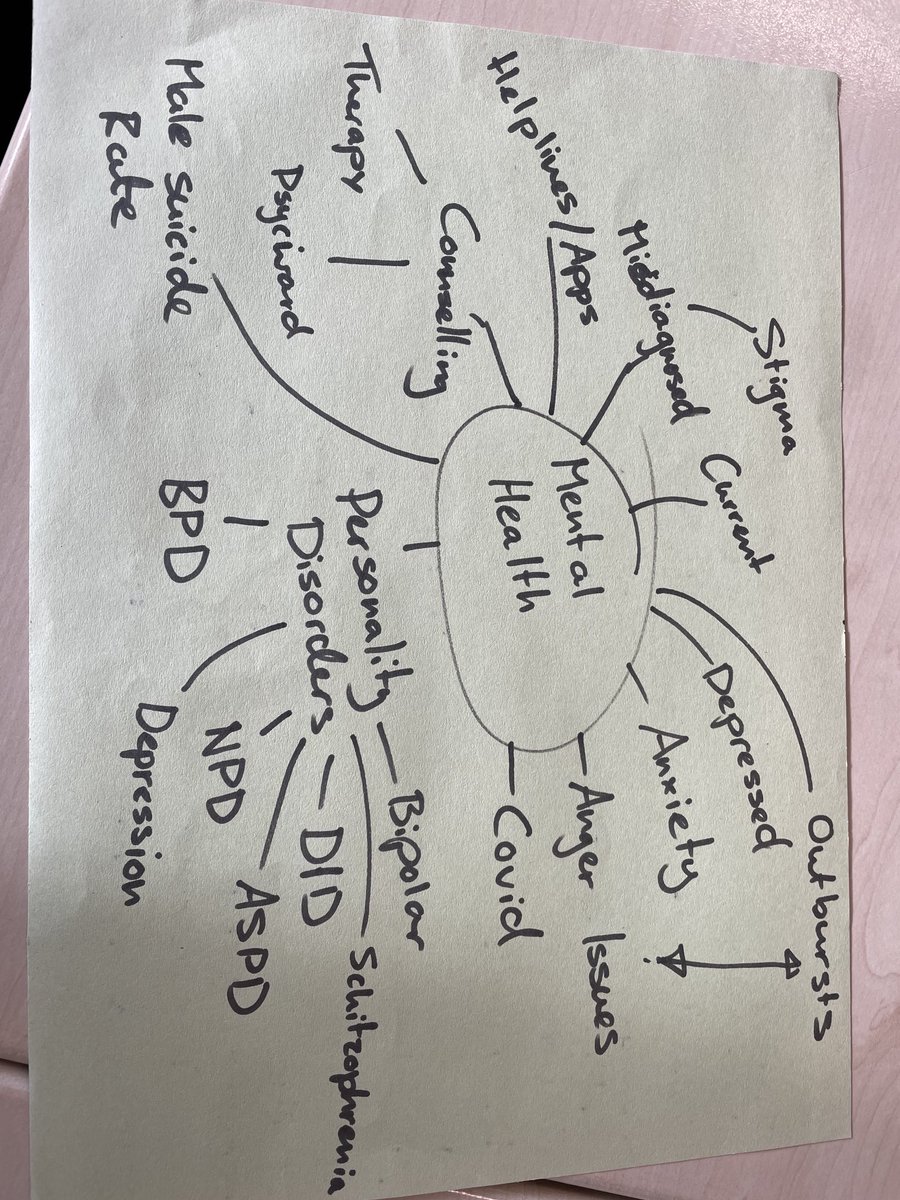 Stigma
Current
Outbursts
Depressed
Anxiety
Anger Issues
Covid
Helplines/Apps
Counselling
Therapy
Psyciward
Male suicide
Rate
Mental
Health
Personality
Disorders
Bipolar
Schitzophrenia
DID
ASPD
NPD
Depression
BPD